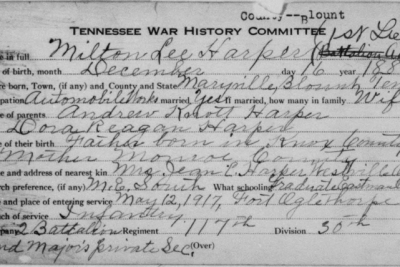 County--Blount
TENNESSEE WAR HISTORY COMMITTEE
e in full Milton Lee Harper (1st Lie
of birth, month December day 16 year 188
ce born, Town, (if any) and County and State Maryville, Blount, Ten
pation Automobile Work married, Yes If married, how many in family Wif
e of parents Andrew Knott Harper
Dora Reagan Harper
e of their birth Father born in Knox County
Mother Monroe County
e and address of nearest kin Mrs. Jean L. Harper
rch preference, (if any) M.E. South What schooling Graduate
e and place of entering service May 12, 1917, Fort Oglethorpe
ch of service Infantry
pany 2 Battalion Regiment 117th Division 30th
nd Majors Private Sec. (Over)